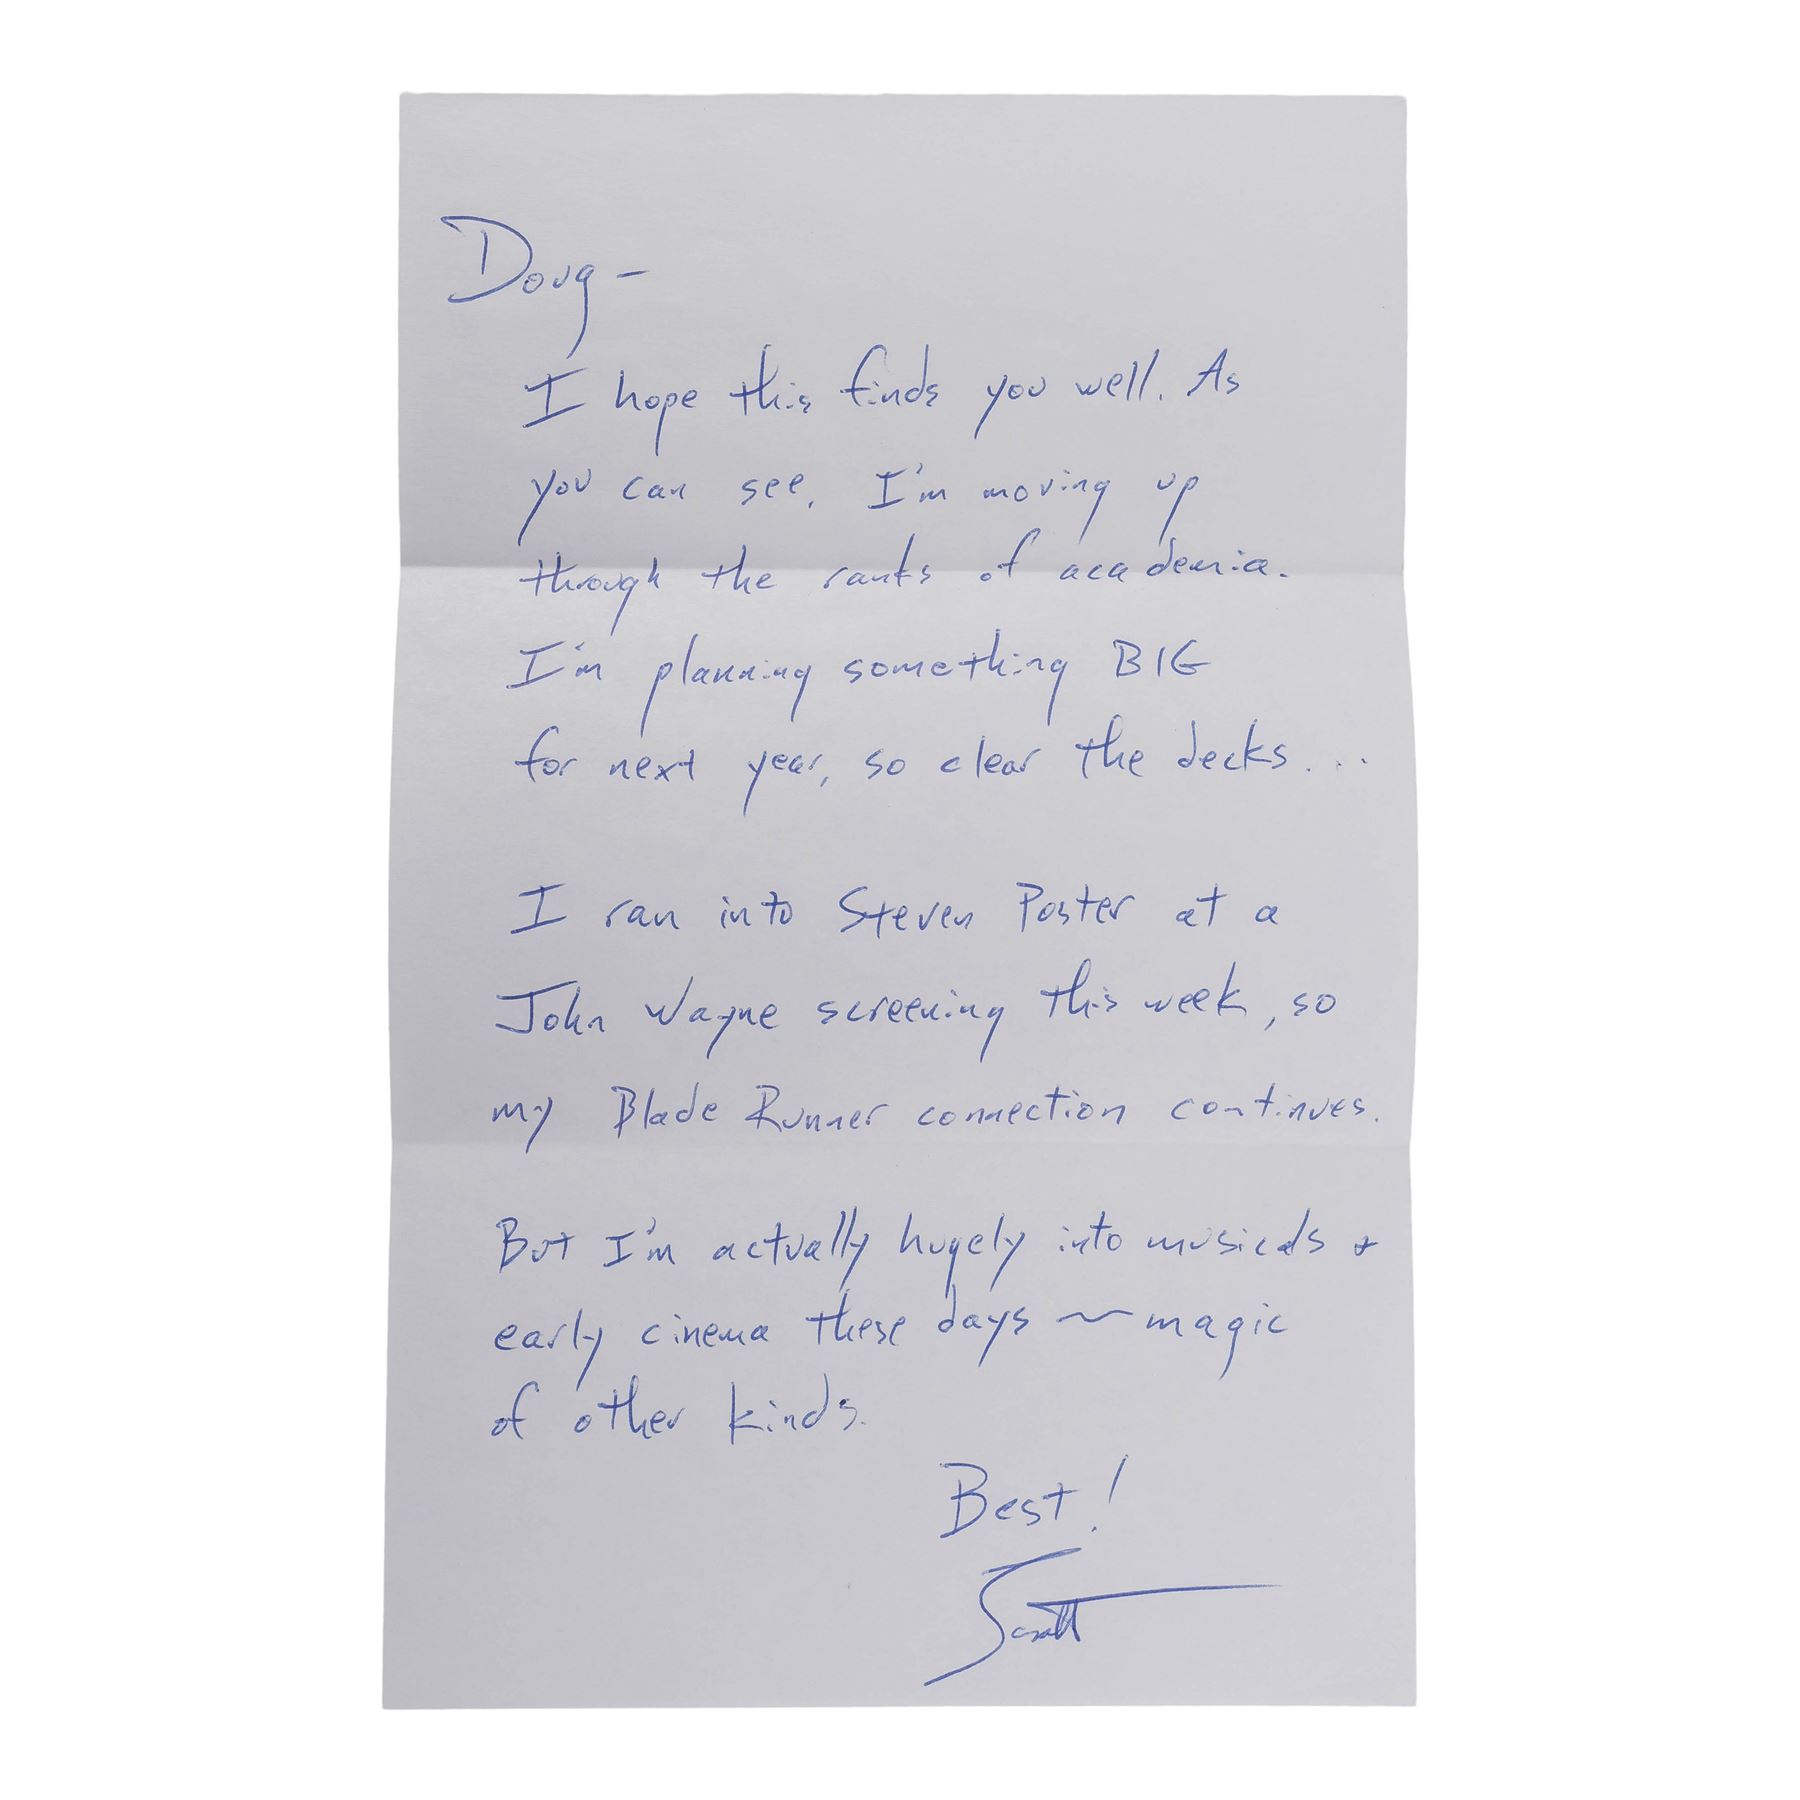 Doug -
I hope this finds you well. As
you can see, I'm moving up
through the ranks of academia.
I'm planning something BIG
for next year, so clear the decks...
I ran into Steven Poster at a
John Wayne screening this week, so
my Blade Runner connection continues.
But I'm actually hugely into musicals &
early cinema these days ~ magic
of other kinds.
Best!
Scott